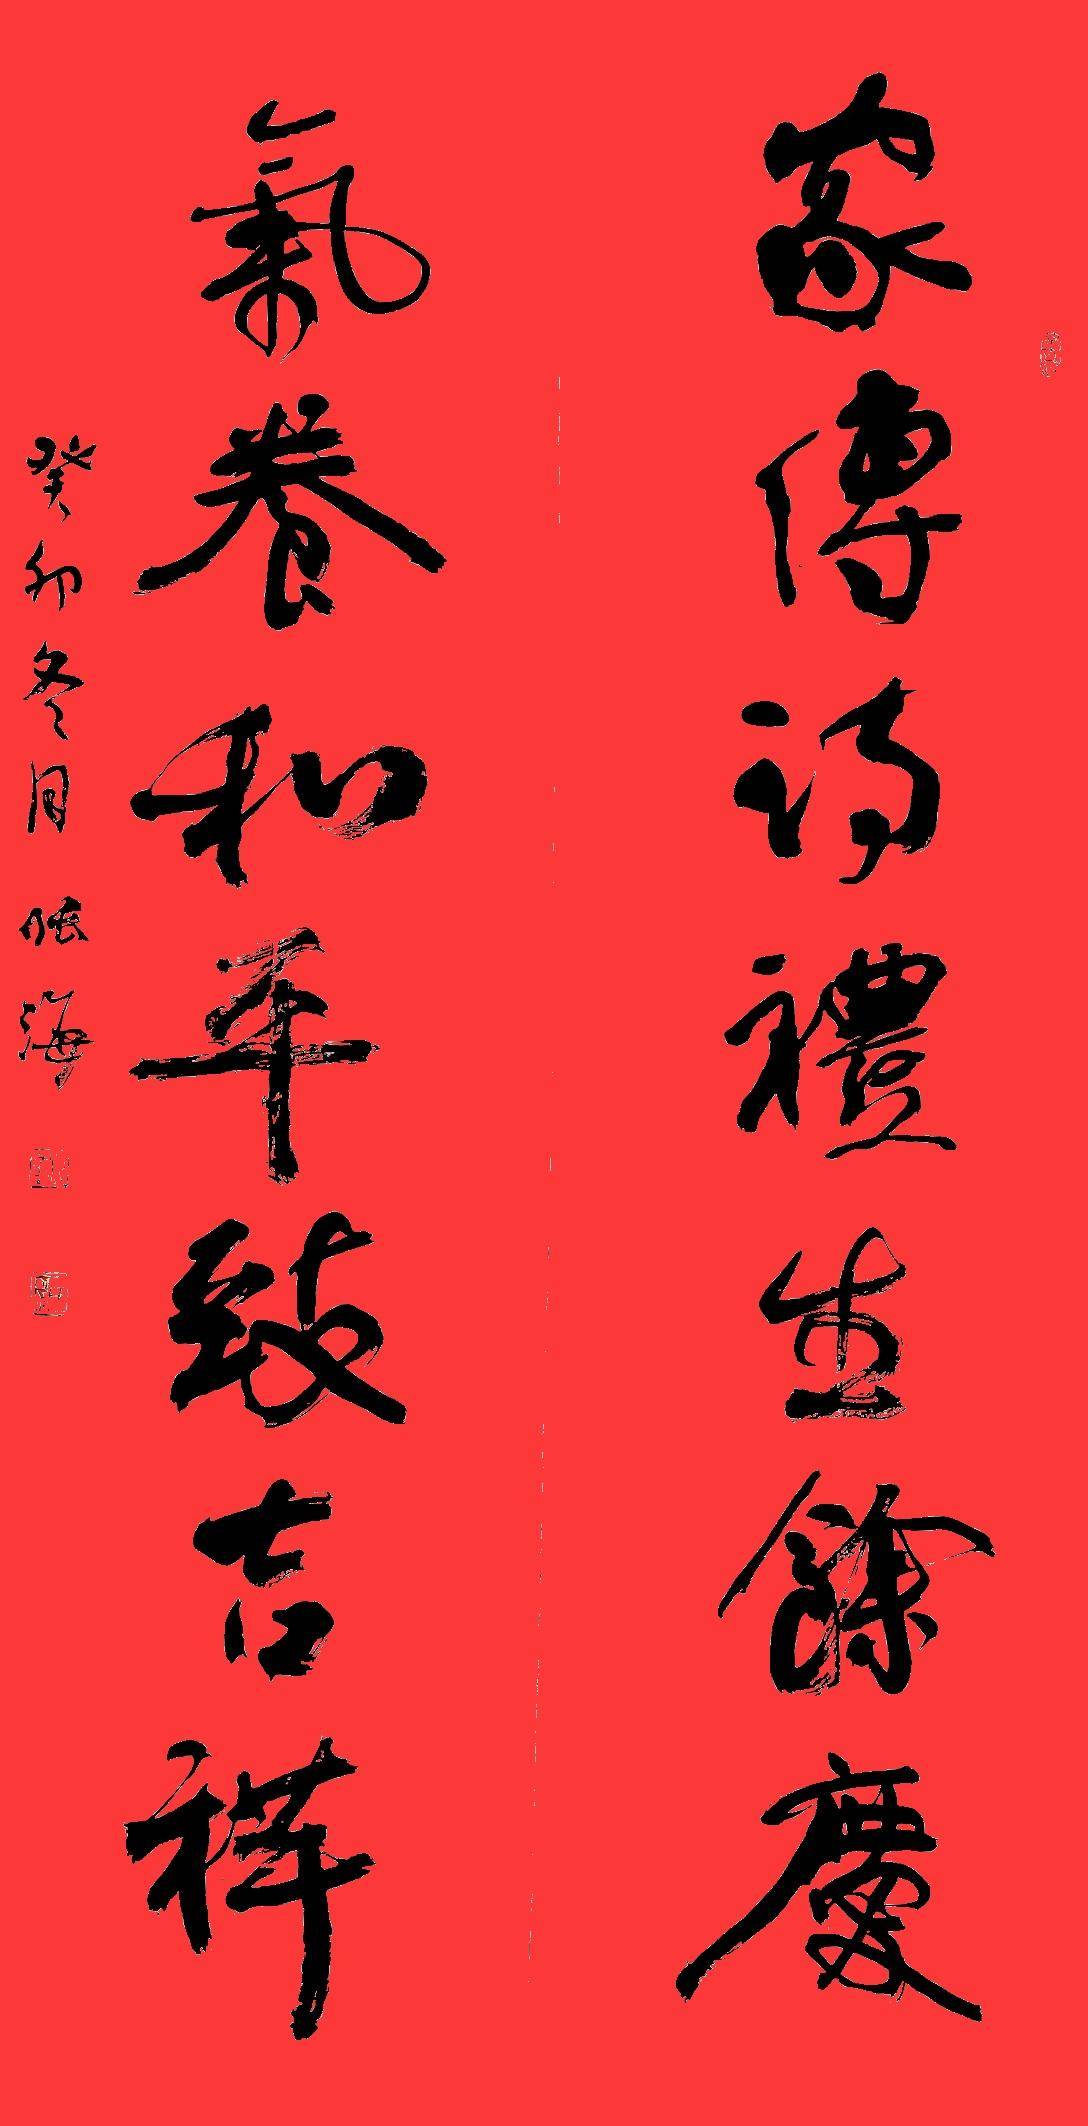 家傳詩禮生餘慶
氣養和平致吉祥
癸卯冬月 張海